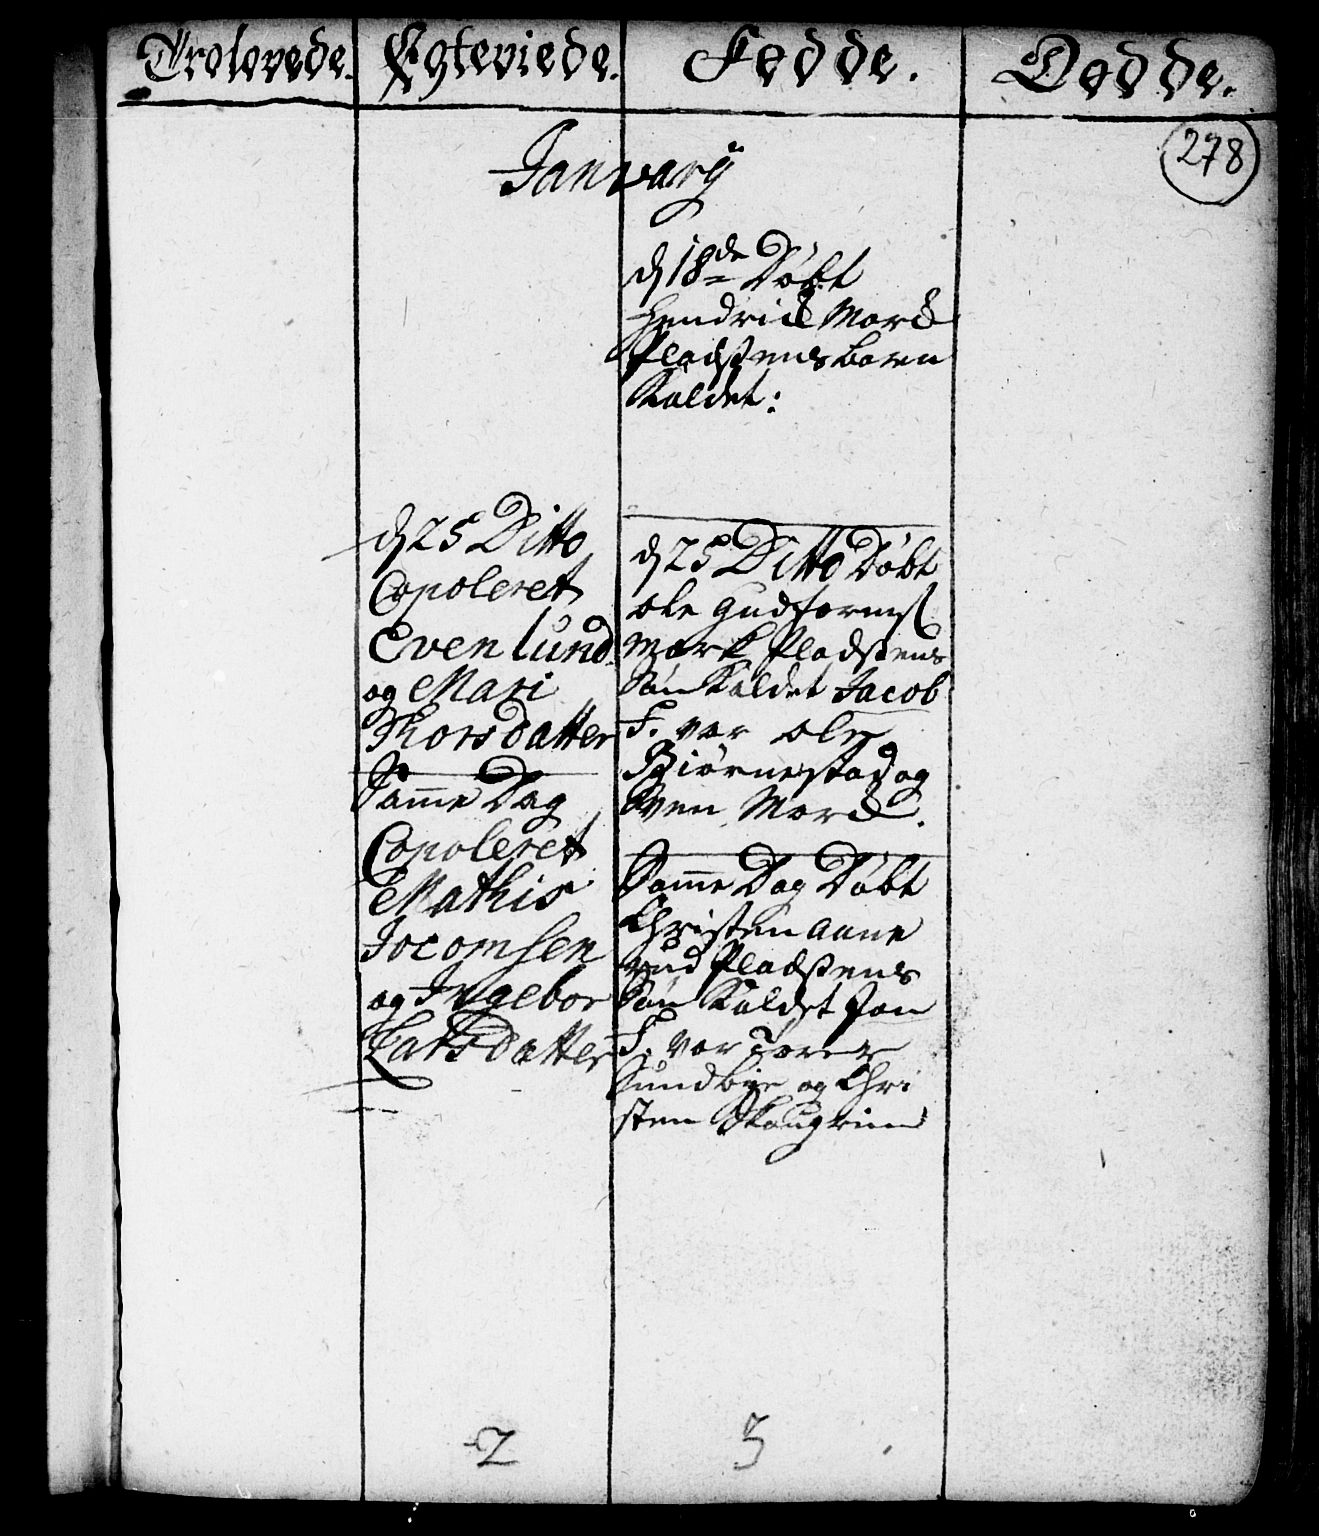 Trolovede. Egteviede. Fødde. Dødde.
278
Januarÿ
d 18de Døbt
Hendrich Mord
Pladsens barn
Kaldet:
d 25 Ditto
Copoleret
Even lund
og Mari
Thorsdatter
Samme Dag
Copoleret
Mathis
Jocomsen
og Ingebor
Larsdatter
d 25 Ditto Døbt
ole Gudformsl
Mork Pladsens
Søn Kaldet Jacob
F. var ole
Biørnestad og
Sven Mord.
Samme Dag Døbt
Christen aane
rud Pladsens
Søn Kaldet Jon
F. var Tører
Sundbÿe og Chri
sten Skougrim
2
3